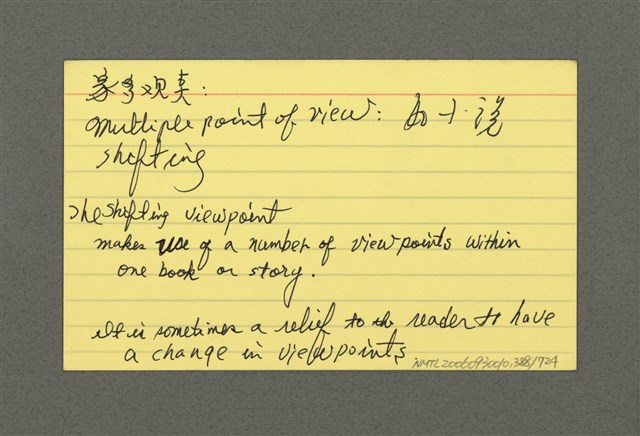 多观点:
multiple point of view: 如小说
shifting
The shifting viewpoint
makes use of a number of viewpoints within
one book or story.
It is sometimes a relief to the reader to have
a change in viewpoints
NMTL20060930010.388/724